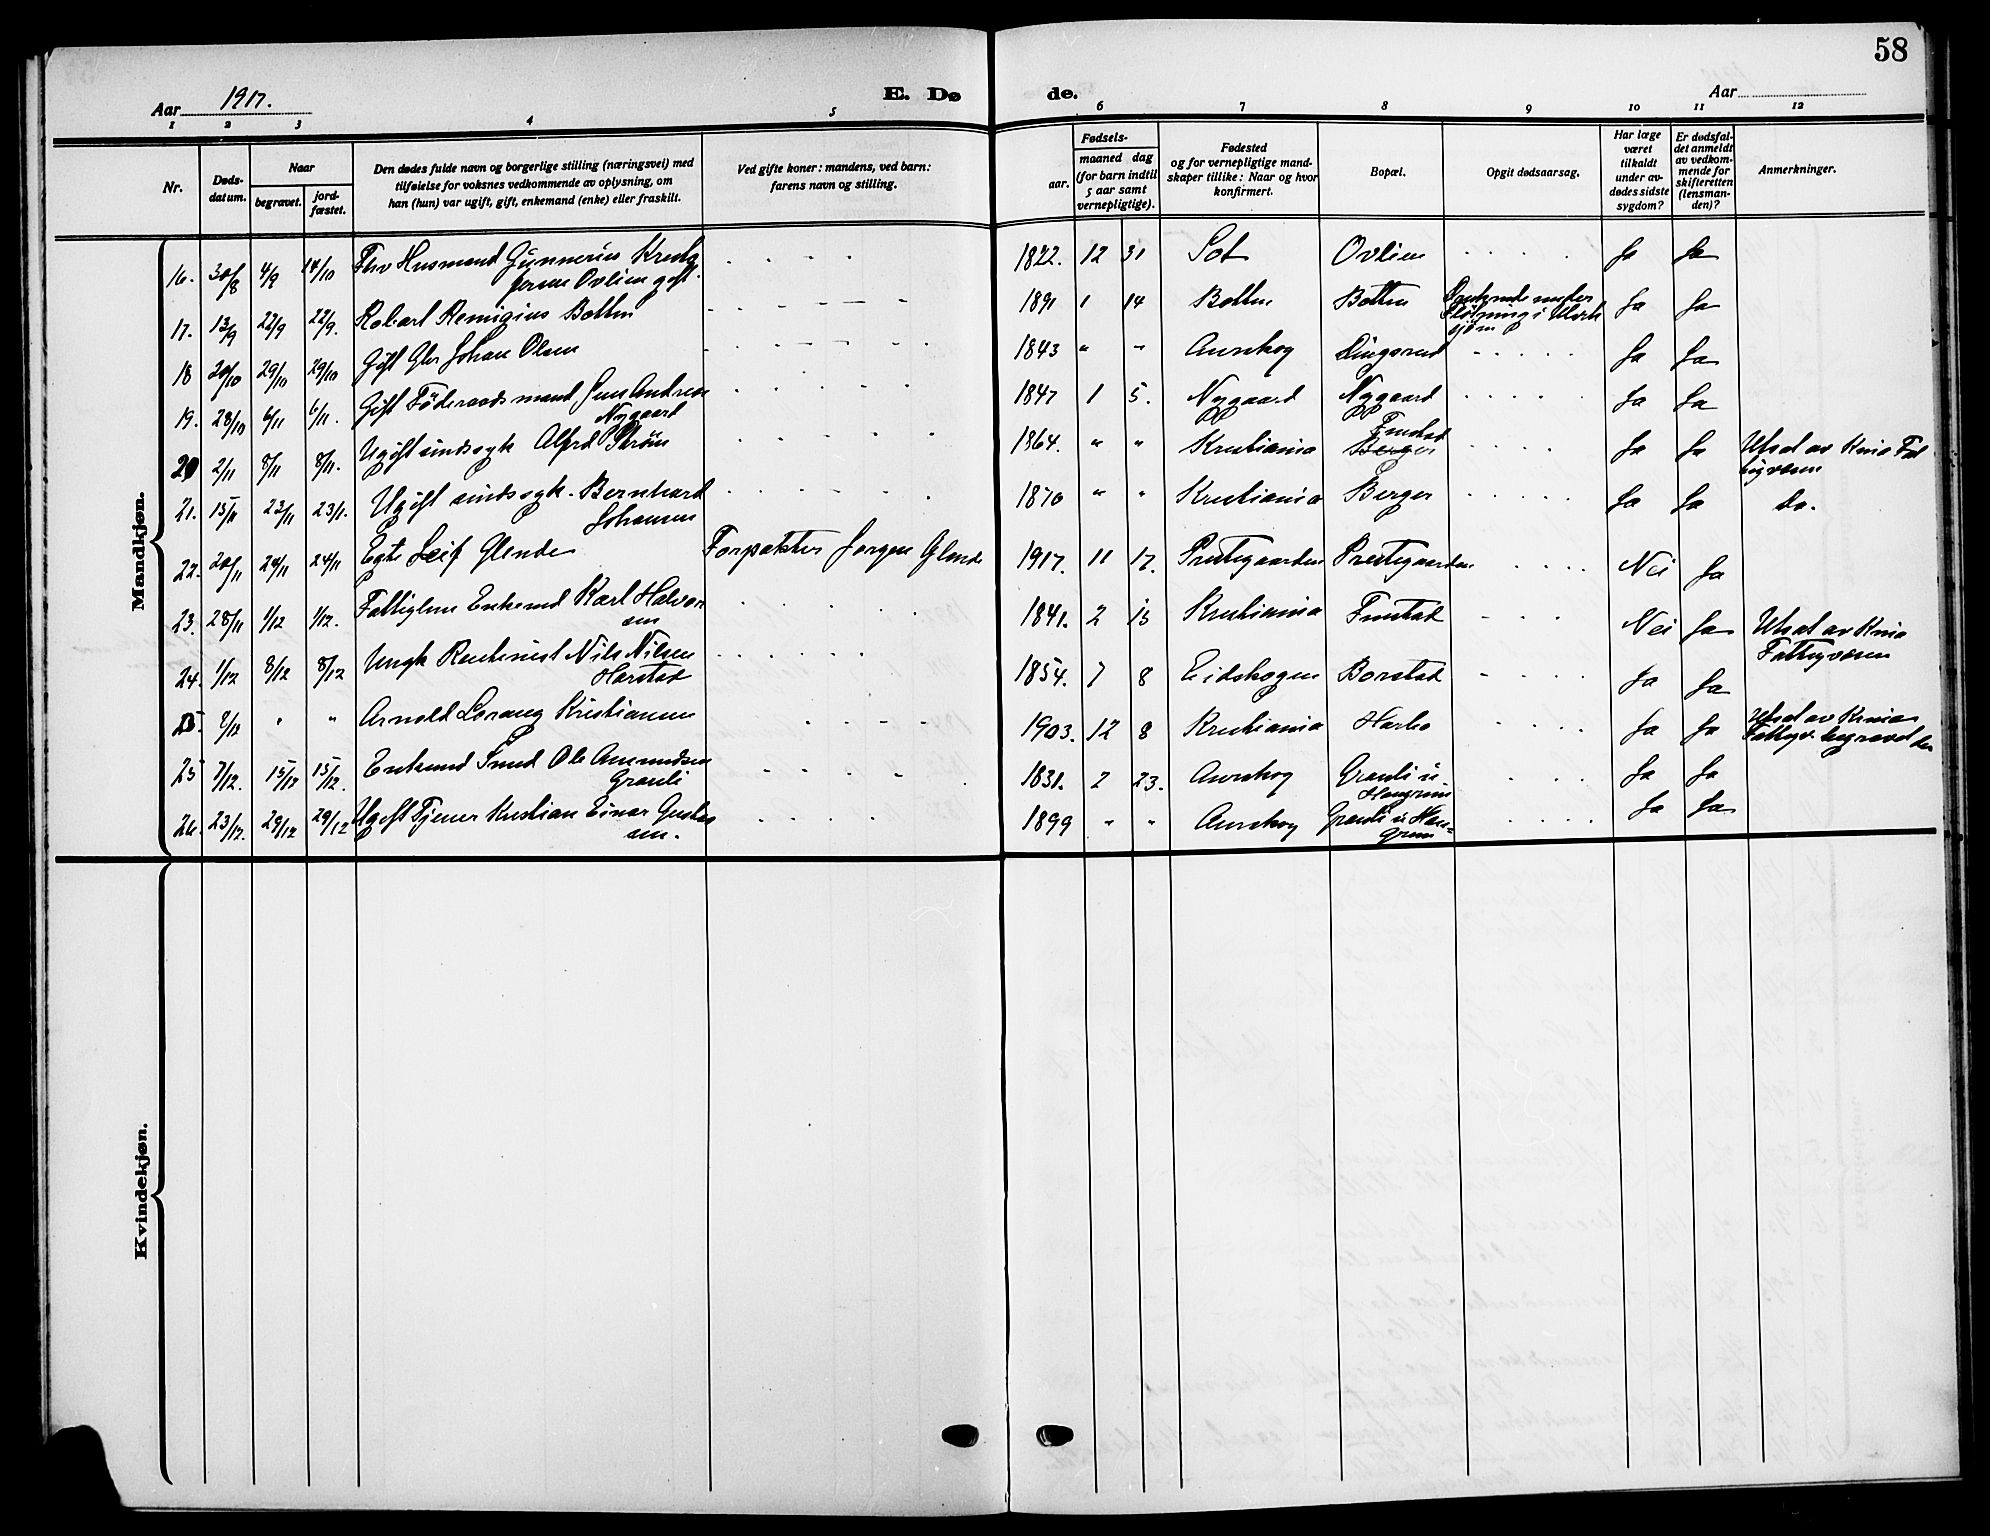 58
Aar 1917.
E. Dø
de.
Aar
1 2 3 4 5 6 7 8 9 10 11 12
Nr.
Døds-
datum.
Naar
begravet.
jord-
fæstet.
Den dødes fulde navn og borgerlige stilling (næringsvei) med
tilføielse for voksnes vedkommende av oplysning, om
han (hun) var ugift, gift, enkemand (enke) eller fraskilt.
Ved gifte koner: mandens, ved barn:
farens navn og stilling.
Fødsels-
aar.
maaned dag
(for barn indtil
5 aar samt
vernepligtige).
Fødested
og for vernepligtige mand-
skaper tillike: Naar og hvor
konfirmert.
Bopæl.
Opgit dødsaarsag.
Har læge
været
tilkaldt
under av-
dødes sidste
sygdom?
Er dødsfal-
det anmeldt
av vedkom-
mende for
skifteretten
(lensman-
den)?
Anmerkninger.
Mandkjøn.
16. 30/8 4/9 14/10 Fhv Husmand Gunnerius Kristo
fersen Ovlien gift. 1822. 12 31 Sot Ovlien Ja Ja
17. 13/9 22/9 22/9. Robert Remigius Botten 1891 1 14 Botten Botten Druknede under
Fløtning i Mork
sjøen Ja Ja
18 20/10 29/10 29/10 Gift Gbr Johan Olsen 1843 " " Aurskog Lingsrud Ja Ja
19. 28/10 6/11 6/11. Gift Føderaadsmand Andrea
Nygaard 1847 1 5. Nygaard Nygaard Ja Ja
20 2/11 8/11 8/11. Ugift sindssyk Alfred Strøm 1864. " " Kristiania Finstad
Berger Ja Ja Utsat av Knia Fat
tigvæsen
21. 15/11 23/11 23/11. Ugift sindssyk. Bernhard
Johansen 1870 " " Kristiania Berger Ja Ja Do.
22. 20/11 24/11 24/11 Egte Leif Glende Forpakter Jørgen Glende 1917. 11 17. Prestegaarden Prestegaarden Nei Ja
23. 28/11 1/12 1/12. Fattiglem Enkemd Karl Halvor
sen 1841. 2 13 Kristiania Finstad Nei Ja Utsat av Knia
Fattigvæsen
24. 1/12 8/12 8/12 Ungk Rentenist Nils Nilsen
Harstad 1854. 7 8 Eidskogen Borstad Ja Ja
8/12 " " Arnold Lorang Kristiansen 1903. 12 8 Kristiania Harbo Ja Ja Utsat av Knia
Fattigv. begravet der
25 7/12. 15/12 15/12. Enkemd Smed Ole Amundsen
Granli 1831. 2 23. Aurskog Granli u.
Haugrim Ja Ja
26. 23/12. 29/12 29/12 Ugift Tjener Kristian Einar Gustav
sen. 1899 " " Aurskog Granli u. Hau-
grim Ja Ja
Kvindekjøn.